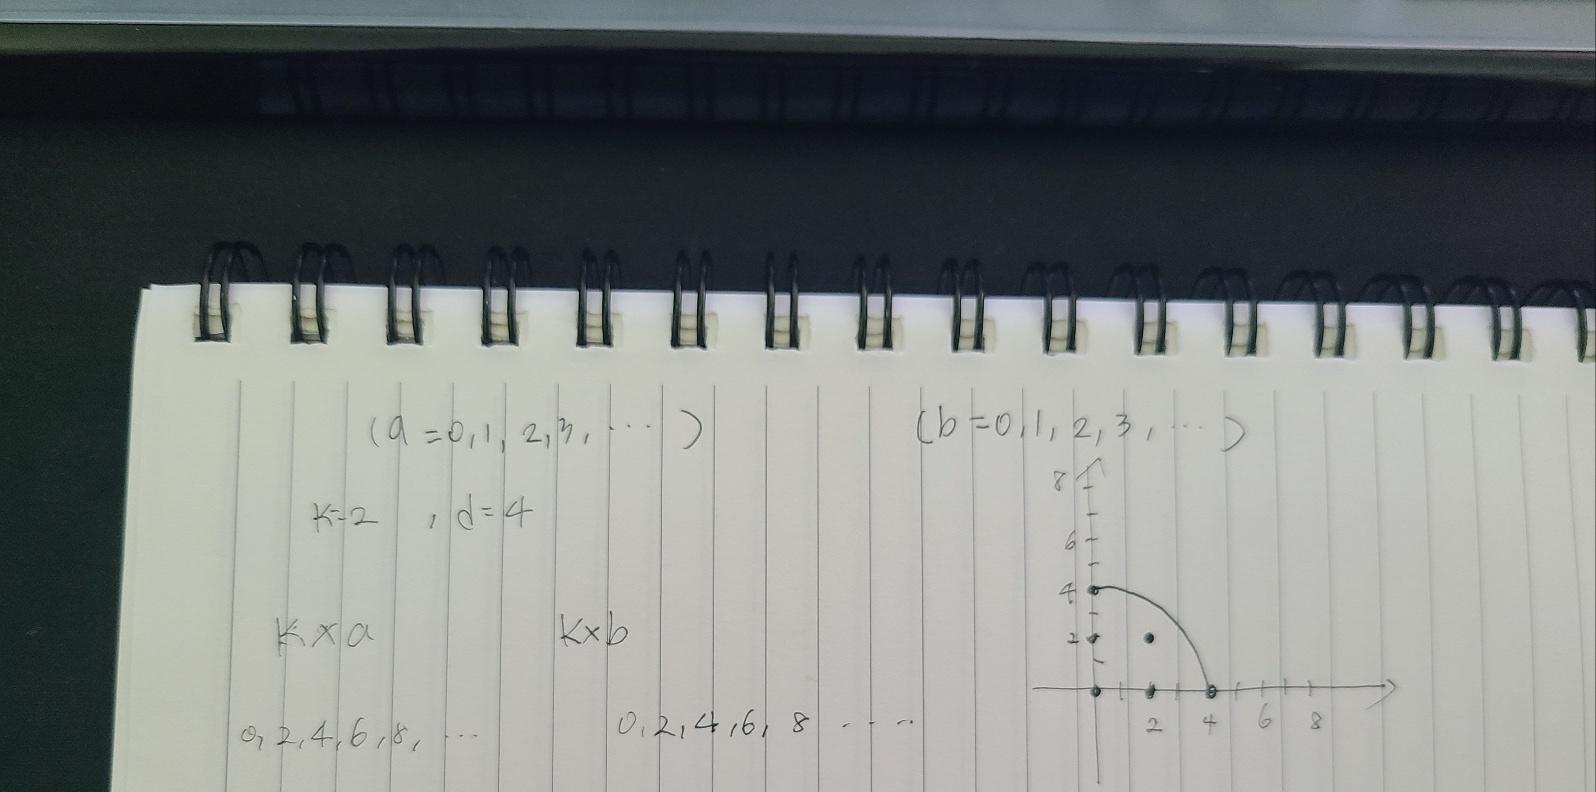 (a=0,1,2,3,...) (b=0,1,2,3,...)
K=2 , d=4
K×a K×b
0,2,4,6,8,... 0,2,4,6,8....
8
6
4
2
2 4 6 8